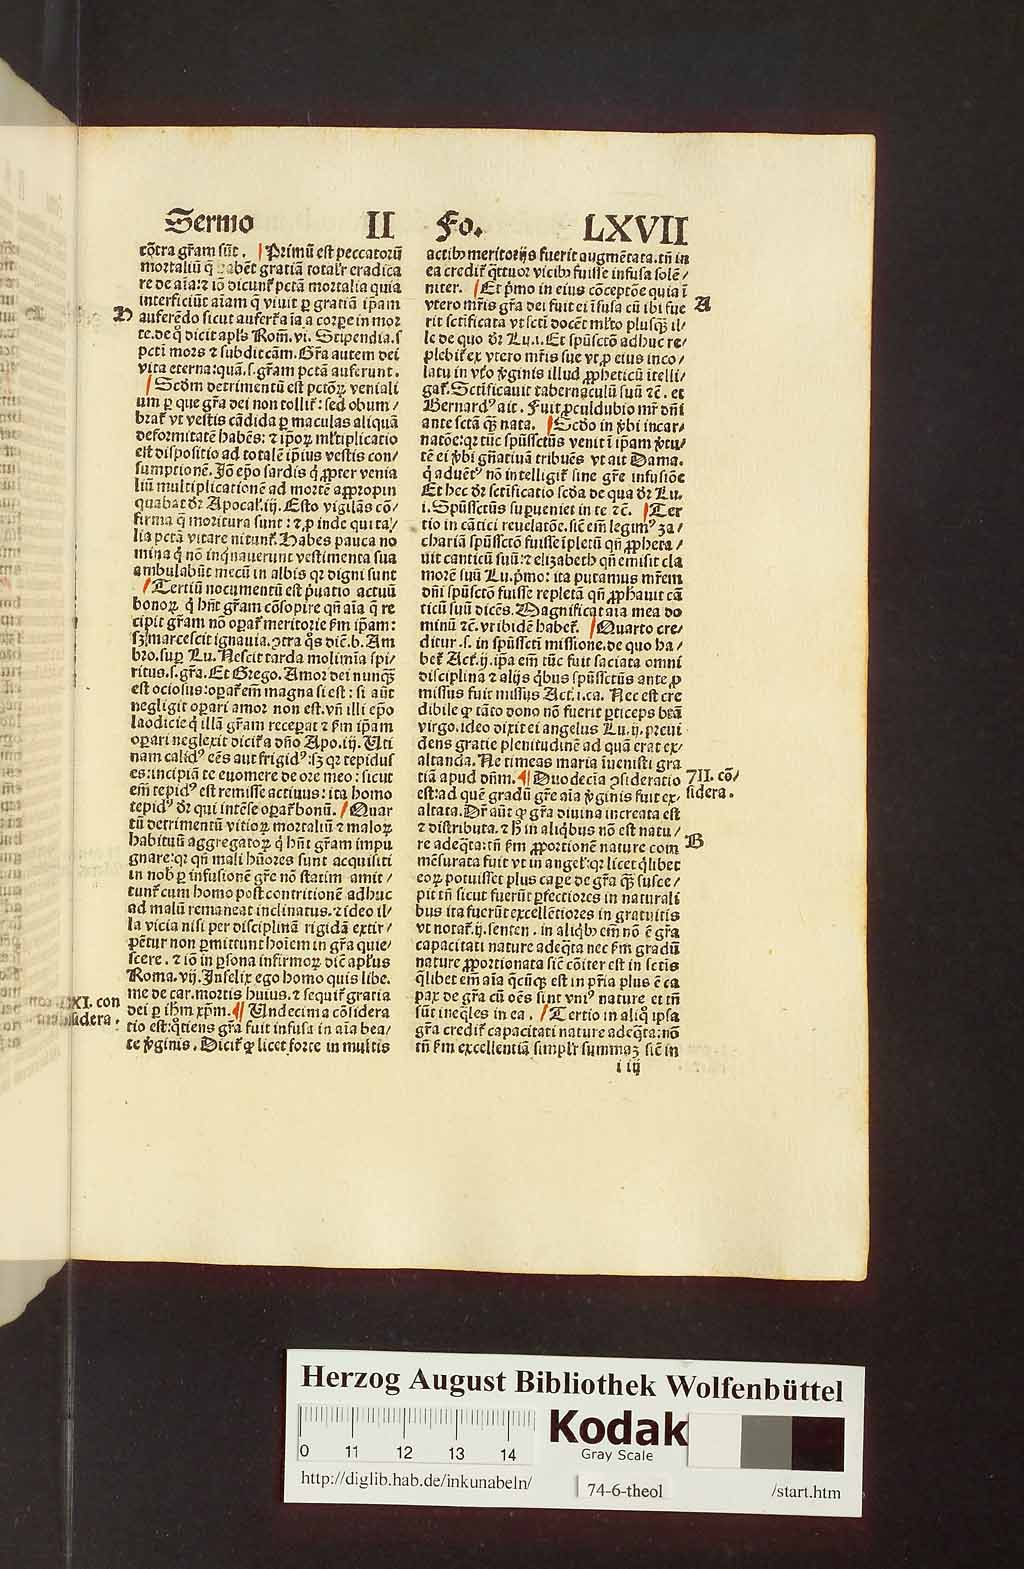 Sermo II Fo. LXVII
cōtra gr̄am sūt. Primū est peccatorū
mortaliū q̄ habēt gratiā total'r eradica
re de aīa: ⁊ iō dicunt̄ pctā mortalia quia
interficiūt aīam q̄ viuit ꝑ gratiā ip̄am
auferēdo sicut aufert̄ aīa a corꝑe in mor
te. de qͦ dicit apl's Rom̄. vi. Stipendia .s
pcti mors ⁊ subdit cām. Gr̄a autem dei
vita eterna: quā .s. gr̄am pctā auferunt.
Scd̄m detrimentū est pctōꝝ veniali
um ꝑ que gr̄a dei non tollit̄: sed obum/
brat̄ vt vestis cādida ꝑ maculas aliquā
deformitatē habēs: ⁊ ip̄oꝝ ml'tiplicatio
est dispositio ad totalē ip̄ius vestis con/
sumptionē. Jō epō sardis q̄ ꝓpter venia
liū multiplicationē ad mortē appropin
quabat dr̄ Apocal'. iij. Esto vigilās cō/
firma q̄ moritura sunt: ⁊ ꝓinde qui ta/
lia pctā vitare nitunt̄. Habes pauca no
mina q̄ nō inq̄nauerunt vestimenta sua
ambulabūt mecū in albis qꝛ digni sunt
Tertiū nocumentū est p̄uatio actuū
bonoꝝ q̄ hn̄t gr̄am cōsopire qn̄ aīa q̄ re
cipit gr̄am nō oꝑat̄ meritorie ẜm ip̄am:
sꝫ marcescit ignauia. ꝯtra q̄s diē. b. Am
bro. suꝑ Lu. Nescit tarda molimīa spi/
ritus. s. gr̄a. Et Grego. Amor dei nunqꝫ
est ociosus: oꝑat̄ em̄ magna si est: si aūt
negligit oꝑari amor non est. vn̄ illi epō
laodicie q̄ illā gr̄am receꝑat ⁊ ẜm ip̄am
oꝑari neglexit dicit̄ a dn̄o Apo. iij. Uti
nam calidꝰ eēs aut frigidꝰ: sꝫ qꝛ tepidus
es: incipiā te euomere de ore meo: sicut
em̄ tepidꝰ est remisse actiuus: ita homo
tepidꝰ dr̄ qui intēse oꝑat̄ bonū. Quar
tū detrimentū vitioꝝ mortaliū ⁊ maloꝝ
habituū aggregatoꝝ q̄ hn̄t gr̄am impu
gnare: qꝛ qn̄ mali hūores sunt acquisiti
in nob̄ ꝑ infusionē gr̄e nō statim amit/
tunt̄ cum homo post contritionē adhuc
ad malū remaneat inclinatus. ⁊ ideo il/
la vicia nisi per disciplinā rigidā extir/
pētur non ꝑmittunt hoīem in gr̄a quie/
scere. ⁊ iō in ꝑsona infirmoꝝ dic̄ apl'us
Roma. vij. Jnfelix ego homo quis libe.
me de car. mortis huius. ⁊ sequit̄ gratia
dei ꝑ ih̄m xp̄m. Undecima cōsidera
tio est: qͦtiens gr̄a fuit infusa in aīa bea/
te v̄ginis. Dicit̄ ꝙ licet forte in multis
D
XI. con
sidera.
actibꝰ meritorijs fuerit augmētata. tn̄ in
ea credit̄ q̄ttuor vicibꝰ fuisse infusa solē/
niter. Et p̄mo in eius cōceptōe quia ī
vtero mr̄is gr̄a dei fuit ei īfusa cū ibi fue
rit sctificata vt scti docēt ml'to plusqꝫ il/
le de quo dr̄ Lu. i. Et spūsctō adhuc re/
plebit̄ ex vtero mr̄is sue vt ꝓ eius inco/
latu in vtō v̄ginis illud ꝓpheticū ītelli/
gat̄. Sctificauit tabernaculū suū ⁊c̄. et
Bernardꝰ ait. Fuit ꝓculdubio mr̄ dn̄i
ante sctā qꝫ nata. Scd̄o in v̄bi incar/
natōe: qꝛ tūc spūssctūs venit ī ip̄am v̄tu/
tē ei v̄bi gn̄atiuā tribuēs vt ait Dama.
q̄ aduētꝰ nō intelligit̄ sine gr̄e infusiōe
Et hec dr̄ sctificatio scd̄a de qua dr̄ Lu.
i. Spūssctūs suꝑueniet in te ⁊c̄. Ter
tio in cātici reuelatōe. sic̄ em̄ legimꝰ za/
chariā spūssctō fuisse īpletū qn̄ ꝓpheta/
uit canticū suū: ⁊ elizabeth qn̄ emisit cla
morē suū Lu. p̄mo: ita putamus mr̄em
dn̄i spūsctō fuisse repletā qn̄ ꝓphauit cā
ticū suū dicēs. Magnificat aīa mea do
minū ⁊c̄. vt ibidē habet̄. Quarto cre/
ditur .s. in spūssctī missione. de quo ha/
bet̄ Act̄. ij. ip̄a em̄ tūc fuit saciata omni
disciplina ⁊ alijs q̄bus spūssctūs ante ꝓ
missus fuit missus Act̄. i. ca. Nec est cre
dibile ꝙ tāto dono nō fuerit ꝑticeps btā
virgo. ideo dixit ei angelus Lu. ij. p̄eui
dens gratie plenitudinē ad quā erat ex/
altanda. Ne timeas maria īuenisti gra
tiā apud dn̄m. Duodecīa ꝯsideratio
est: ad quē gradū gr̄e aīa v̄ginis fuit ex/
altata. Dr̄ aūt ꝙ gr̄a diuina increata est
⁊ distributa. ⁊ h̄ in aliq̄bus nō est natu/
re adeq̄ta: tn̄ ẜm ꝓportionē nature com
mēsurata fuit vt in angel': qꝛ licet q̄libet
eoꝝ potuisset plus caꝑe de gr̄a qꝫ susce/
pit tn̄ sicut fuerūt ꝑfectiores in naturali
bus ita fuerūt excellētiores in gratuitis
vt notat̄. ij. senten. in aliq̄bꝰ em̄ nō ē gr̄a
capacitati nature adeq̄ta nec ẜm gradū
nature ꝓportionata sic̄ cōiter est in sctis
q̄libet em̄ aīa q̄cūqꝫ est in pr̄ia plus ē ca
pax de gr̄a cū oēs sint vniꝰ nature et tn̄
sūt ineq̄les in ea. Tertio in aliq̄ ipsa
gr̄a credit̄ capacitati nature adeq̄ta: nō
tn̄ ẜm excellentiā simpl'r summaꝫ sic̄ in
A
7II. cō/
sidera.
B
i iij
Herzog August Bibliothek Wolfenbüttel
0 11 12 13 14
Kodak
Gray Scale
http://diglib.hab.de/inkunabeln/ 74-6-theol /start.htm